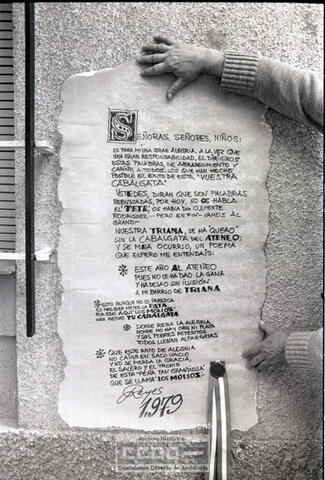 SEÑORAS, SEÑORES, NIÑOS:
ES PARA MI UNA GRAN ALEGRIA, A LA VEZ QUE
UNA GRAN RESPONSABILIDAD, EL DIRIGIROS
ESTAS PALABRAS, DE AGRADECIMIENTO Y
CARIÑO A TODOS, LOS QUE HAN HECHO
POSIBLE EL EXITO DE ESTA, "VUESTRA
CABALGATA"
USTEDES, DIRAN QUE SON PALABRAS
REBUSCADAS, POR HOY, NO OS HABLA
EL "TETE", OS HABLA DON CLEMENTE
RODRIGUEZ,- PERO EN FIN-VAMOS AL
GRANO:-
NUESTRA TRIANA, SE HA "QUEAO"
SIN LA CABALGATA DEL ATENEO,
Y SE MEA OCURRIO, UN POEMA
QUE ESPERO ME ENTENDAIS:
* ESTE AÑO AL ATENEO
PUES NO LE HA DAO LA GANA
Y HA DEJAO SIN ILUSIÓN
A MI BARRIO DE TRIANA
* ESTO AUNQUE NO LO PAREZCA
ES PA
POR ESO AQUI "LOS MOLIOS"
HAN HECHO TU CABALGATA
* DONDE REINA LA ALEGRIA
DONDE NO HAY ORO NI PLATA
Y SUS POBRES REYESITOS
TODOS LLEVAN ALPARGATAS
* QUE ESTE RATO DE ALEGRIA
NO CAIGA EN SACO VACIO
Y NO SE PIERDA LA GRACIA,
EL SALERO Y EL TRONIO
DE ESTA "PEÑA TAN GRANDIOSA"
QUE SE LLAMA "LOS MOLIOS"
Reyes
1.979
Archivo Histórico
CCOO
Comisiones Obreras de Andalucía